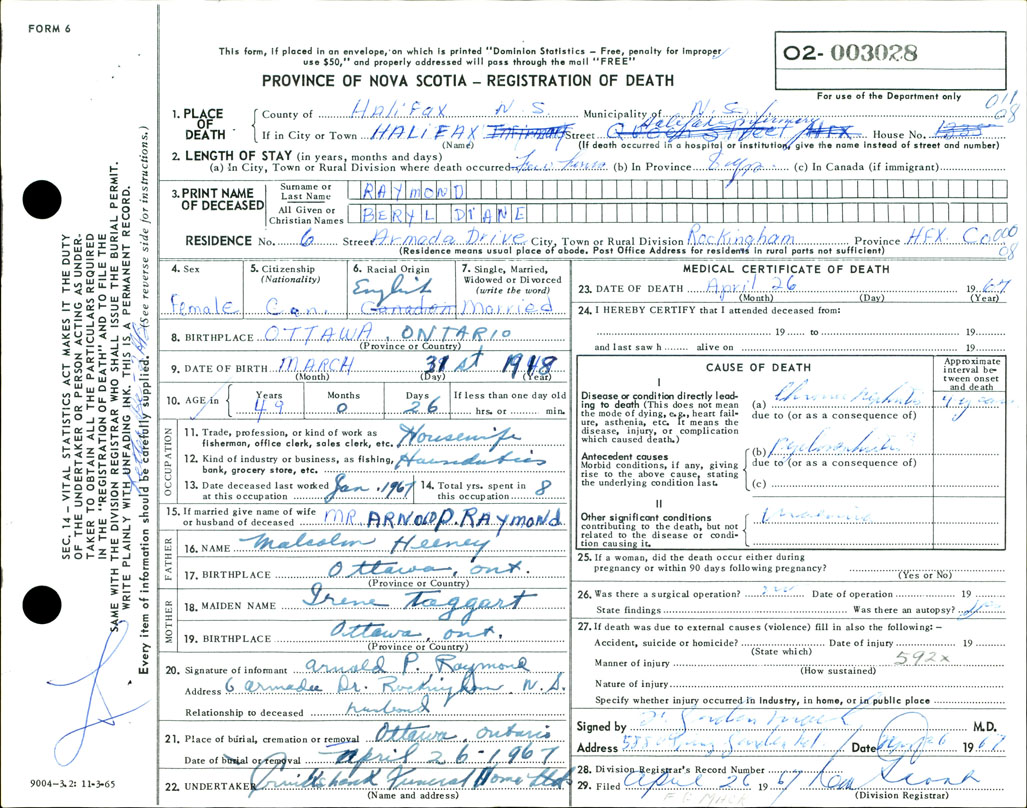 FORM 6
This form, if placed in an envelope, on which is printed "Dominion Statistics – Free, penalty for improper
use $50," and properly addressed will pass through the mail "FREE"
PROVINCE OF NOVA SCOTIA – REGISTRATION OF DEATH
02- 003028
For use of the Department only
011
08
1. PLACE OF DEATH
County of HALIFAX N.S. Municipality of N.S.
Halifax Infirmary
If in City or Town HALIFAX Infirmary Street Queen Street HFX House No.
(Name) (If death occurred in a hospital or institution, give the name instead of street and number)
2. LENGTH OF STAY (in years, months and days)
(a) In City, Town or Rural Division where death occurred few hours (b) In Province 8 yrs (c) In Canada (if immigrant)
3. PRINT NAME OF DECEASED
Surname or Last Name RAYMOND
All Given or Christian Names BERYL DIANE
RESIDENCE No. 6 Street Armada Drive City, Town or Rural Division Rockingham Province HFX. Co. 000
08
(Residence means usual place of abode. Post Office Address for residents in rural parts not sufficient)
4. Sex Female
5. Citizenship (Nationality) Can.
6. Racial Origin English Canadian
7. Single, Married, Widowed or Divorced (write the word) Married
8. BIRTHPLACE OTTAWA, ONTARIO
(Province or Country)
9. DATE OF BIRTH MARCH 31st 1918
(Month) (Day) (Year)
10. AGE in Years 49 Months 0 Days 26 If less than one day old hrs. or min.
OCCUPATION
11. Trade, profession, or kind of work as fisherman, office clerk, sales clerk, etc. Housewife
12. Kind of industry or business, as fishing, bank, grocery store, etc. Housduties
13. Date deceased last worked at this occupation Jan. 1967 14. Total yrs. spent in this occupation 8
15. If married give name of wife or husband of deceased MR. ARNOLD P. RAYMOND
FATHER
16. NAME Malcolm Heeney
17. BIRTHPLACE Ottawa, ont.
(Province or Country)
MOTHER
18. MAIDEN NAME Irene Taggart
19. BIRTHPLACE Ottawa, ont.
(Province or Country)
20. Signature of informant Arnold P. Raymond
Address 6 armadee Dr. Rockingham N.S.
Relationship to deceased husband
21. Place of burial, cremation or removal Ottawa, ontario
Date of burial or removal April 26-1967
22. UNDERTAKER Cruikshank Funeral Home Ltd
(Name and address)
MEDICAL CERTIFICATE OF DEATH
23. DATE OF DEATH April 26 1967
(Month) (Day) (Year)
24. I HEREBY CERTIFY that I attended deceased from:
19 to 19
and last saw h alive on 19
CAUSE OF DEATH
Approximate interval between onset and death
I
Disease or condition directly leading to death (This does not mean the mode of dying, e.g., heart failure, asthenia, etc. It means the disease, injury, or complication which caused death.)
(a) Chronic Nephritis 4 years
due to (or as a consequence of)
Antecedent causes
Morbid conditions, if any, giving rise to the above cause, stating the underlying condition last.
(b) Pyelonephritis
due to (or as a consequence of)
(c)
II
Other significant conditions contributing to the death, but not related to the disease or condition causing it.
25. If a woman, did the death occur either during pregnancy or within 90 days following pregnancy?
(Yes or No)
26. Was there a surgical operation? Date of operation 19
State findings Was there an autopsy?
27. If death was due to external causes (violence) fill in also the following: –
Accident, suicide or homicide? Date of injury 19
(State which)
592X
Manner of injury
(How sustained)
Nature of injury
Specify whether injury occurred in industry, in home, or in public place
Signed by M.D.
Address Date 26 1967
28. Division Registrar's Record Number
29. Filed April 26 1967
(Division Registrar)
SEC. 14 – VITAL STATISTICS ACT MAKES IT THE DUTY
OF THE UNDERTAKER OR PERSON ACTING AS UNDER-
TAKER TO OBTAIN ALL THE PARTICULARS REQUIRED
IN THE "REGISTRATION OF DEATH" AND TO FILE THE
SAME WITH THE DIVISION REGISTRAR WHO SHALL ISSUE THE BURIAL PERMIT.
WRITE PLAINLY WITH UNFADING INK. THIS IS A PERMANENT RECORD.
Every item of information should be carefully supplied. (See reverse side for instructions.)
9004-3.2: 11-3-65